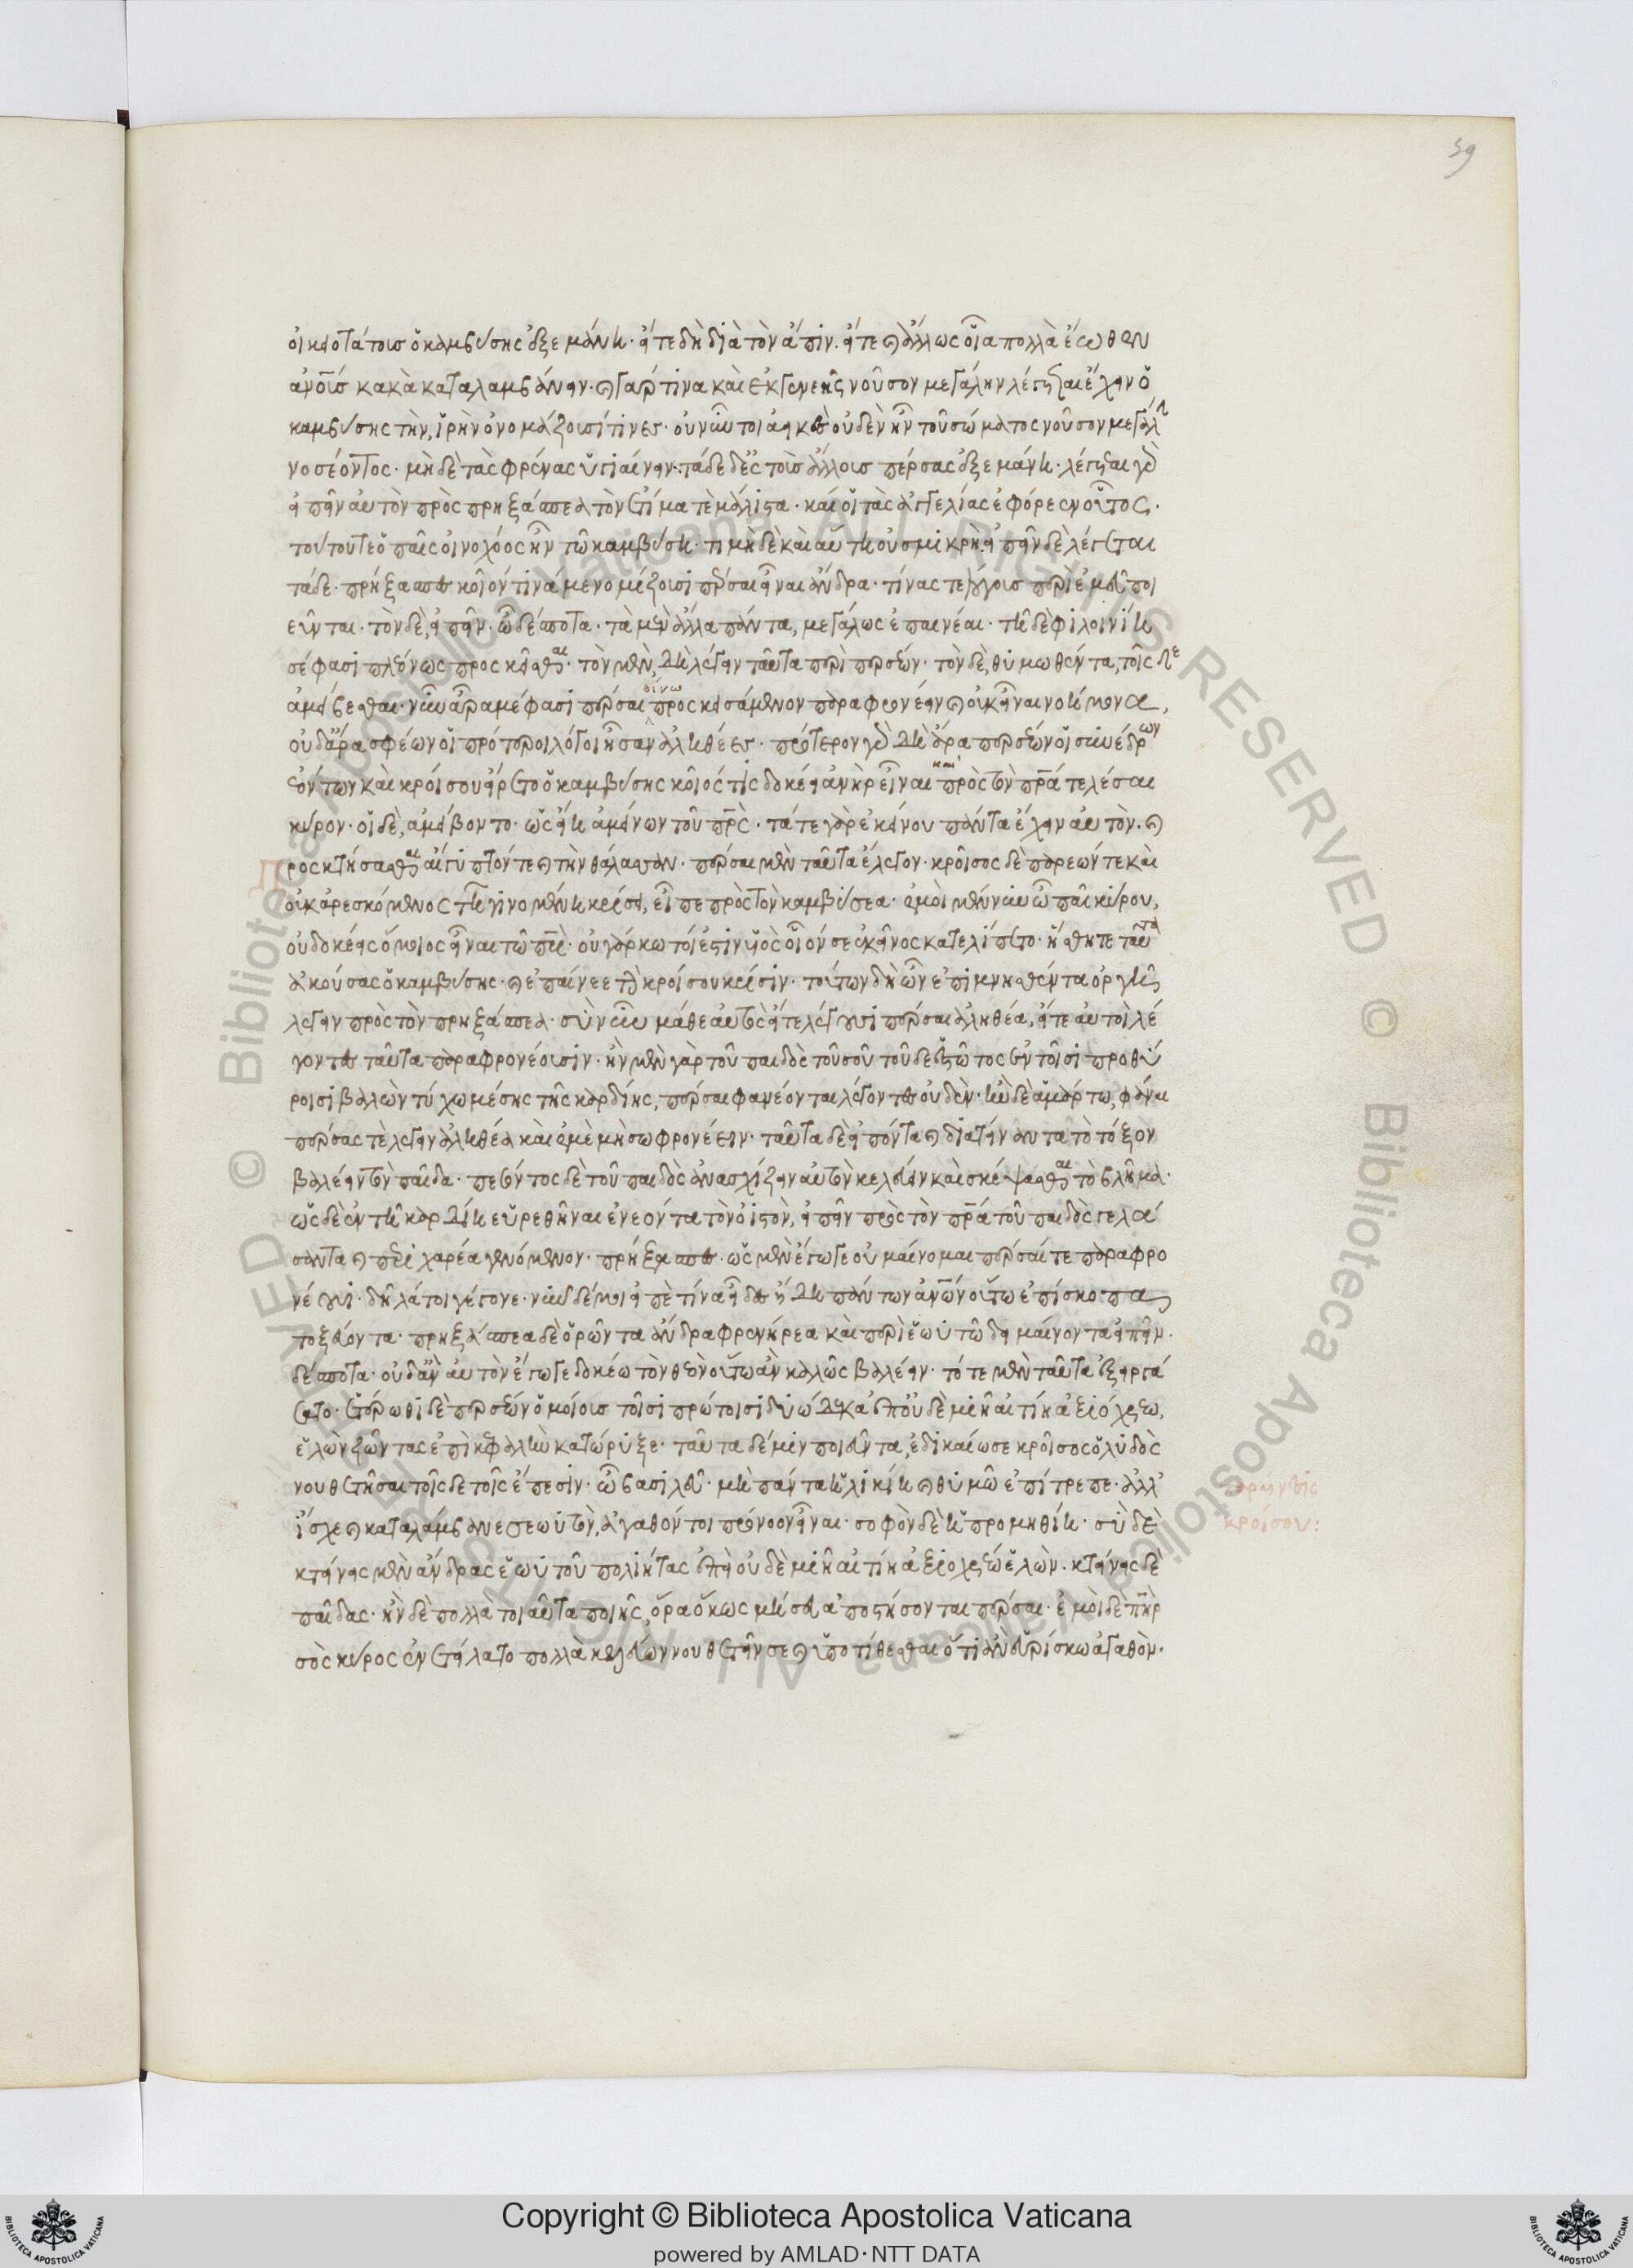 59
οἰκειοτάτοισι ὁ καμβύσης ἐξεμάνη· εἴτε δὴ διὰ τὸν ἄπιν· εἴτε καὶ ἄλλως οἷα πολλὰ ἔωθεν
ἀνοῖς κακὰ καταλαμβάνειν· καὶ γάρ τινα καὶ ἐκ γενεῆς νοῦσον μεγάλην λέγεται ἔχειν ὁ
καμβύσης τὴν, ἱρὴν ὀνομάζουσί τινες· οὐ νῦν τοι ἀεικὲς οὐδὲν ἦν τοῦ σώματος νοῦσον μεγάλην
νοσέοντος· μὴ δὲ τὰς φρένας ὑγιαίνειν· τάδε δ' ἐς τοὺς ἄλλους πέρσας ἐξεμάνη· λέγεται γὰρ
εἰπεῖν αὐτὸν πρὸς πρηξάσπεα τὸν ἐτίμα τὲ μάλιστα· καί οἱ τὰς ἀγγελίας ἐφόρεεν οὗτος·
τούτου τε ὁ παῖς οἰνοχόος ἦν τῶ καμβύση· τιμὴ δὲ καὶ αὕτη οὐ σμικρή· εἰπεῖν δὲ λέγεται
τάδε· πρήξασπες κοῖόν τινά με νομίζουσι πέρσαι εἶναι ἄνδρα· τίνας τε λόγους περὶ ἐμοῦ ποι
εῦνται· τὸν δὲ, εἰπεῖν· ὦ δέσποτα· τὰ μὲν ἄλλα πάντα, μεγάλως ἐπαινέαι· τῆ δὲ φιλοινίη
σέ φασι πλεόνως προσκεῖσθαι· τὸν μὲν, δὴ λέγειν ταῦτα περὶ περσέων· τὸν δὲ, θυμωθέντα, τοῖς δε
ἀμείβεσθαι· νῦν ἄρα μέ φασι πέρσαι οἴνω προσκείμενον παραφρονέειν καὶ οὐκ εἶναι νοήμονα,
οὐδ' ἄρα σφέων οἱ πρότεροι λόγοι ἦσαν ἀληθέες· πρότερον γὰρ δὴ ἄρα περσέων οἱ συνέδρων
ἐόντων καὶ κροίσου εἴρετο ὁ καμβύσης κοῖός τις δοκέει ἀνὴρ εἶναι καὶ πρὸς τὸν πρα τελέσαι
κῦρον· οἱ δὲ, ἀμείβοντο· ὡς εἴη ἀμείνων τοῦ πρς· τά τε γὰρ ἐκείνου πάντα ἔχειν αὐτὸν· καὶ
προσκτήσασθαι αἴγυπτόν τε καὶ τὴν θάλασσαν· πέρσαι μὲν ταῦτα ἔλεγον· κροῖσος δὲ παρεών τε καὶ
οὐκ ἀρεσκόμενος τῆ γινομένη κρίσι, εἶπε πρὸς τὸν καμβύσεα· ἐμοὶ μέν νυν ὦ παῖ κύρου,
οὐ δοκέεις ὅμοιος εἶναι τῶ πρι· οὐ γάρ κώ τοί ἐστιν υἱὸς οἷον σε ἐκεῖνος κατελίπετο· ἥσθη τε ταῦτα
ἀκούσας ὁ καμβύσης· καὶ ἐπαίνεε τὴν κροίσου κρίσιν· τούτων δὴ ὦν ἐπιμνησθέντα ὀργῆ
λέγειν πρὸς τὸν πρηξάσπεα· σὺ νῦν μάθε αὐτὸς εἴτε λέγουσι πέρσαι ἀληθέα, εἴτε αὐτοὶ λέ
γοντες ταῦτα παραφρονέουσιν· ἢν μὲν γὰρ τοῦ παιδὸς τοῦ σοῦ τοῦδε ἑστῶτος ἐν τοῖσι προθύ
ροισι βαλὼν τύχω μέσης τῆς καρδίης, πέρσαι φανέονται λέγοντες οὐδέν· ἢν δὲ ἁμάρτω, φάναι
πέρσας τὲ λέγειν ἀληθέα καὶ ἐμὲ μὴ σωφρονέειν· ταῦτα δὲ εἰπόντα καὶ διατείναντα τὸ τόξον
βαλέειν τὸν παῖδα· πεσόντος δὲ τοῦ παιδὸς ἀνασχίζειν αὐτὸν κελεύειν καὶ σκέψασθαι τὸ βλῆμα·
ὡς δὲ ἐν τῆ καρδίη εὑρεθῆναι ἐνεόντα τὸν ὀιστὸν, εἰπεῖν πρὸς τὸν πρα τοῦ παιδὸς γελά
σαντα καὶ περιχαρέα γενόμενον· πρήξασπες· ὡς μὲν ἔγωγε οὐ μαίνομαι πέρσαι τε παραφρο
νέουσι· δῆλά τοι γέγονε· νῦν δέ μοι εἰπὲ τίνα εἶδες ἤδη πάντων ἀνῶν οὕτω ἐπίσκοπα
τοξεύοντα· πρηξάσπεα δὲ ὁρῶντα ἄνδρα φρενήρεα καὶ περὶ ἑωυτῶ δειμαίνοντα εἰπεῖν·
δέσποτα· οὐδ' ἂν αὐτὸν ἔγωγε δοκέω τὸν θεὸν οὕτω ἂν καλῶς βαλέειν· τότε μὲν ταῦτα ἐξεργά
σατο· ἑτέρωθι δὲ περσέων ὁμοίους τοῖσι πρώτοισι δυώδεκα ἐπ' οὐδεμιῆ αἰτίη ἀξιόχρεω,
ἑλὼν ζῶντας ἐπὶ κεφαλὴν κατώρυξε· ταῦτα δέ μιν ποιεῦντα, ἐδικαίωσε κροῖσος ὁ λυδὸς
νουθετῆσαι τοῖς δε τοῖς ἔπεσιν· ὦ βασιλεῦ· μὴ πάντα ἡλικίη καὶ θυμῶ ἐπίτρεπε· ἀλλ'
ἴσχε καὶ καταλάμβανε σεωυτὸν, ἀγαθόν τοι πρόνοον εἶναι· σοφὸν δὲ ἡ προμηθίη· σὺ δὲ
κτείνεις μὲν ἄνδρας ἑωυτοῦ πολιήτας ἐπ' οὐδεμιῆ αἰτίη ἀξιοχρέω ἑλὼν· κτείνεις δὲ
παῖδας· ἢν δὲ πολλὰ τοιαῦτα ποιῆς, ὅρα ὅκως μή σευ ἀποστήσονται πέρσαι· ἐμοὶ δὲ πηρ
σὸς κῦρος ἐνετείλατο πολλὰ κελεύων νουθετέειν σε καὶ ὑποτίθεσθαι ὅ τι ἂν εὑρίσκω ἀγαθὸν·
παραίνεσις
κροίσου:
Copyright © Biblioteca Apostolica Vaticana
powered by AMLAD·NTT DATA